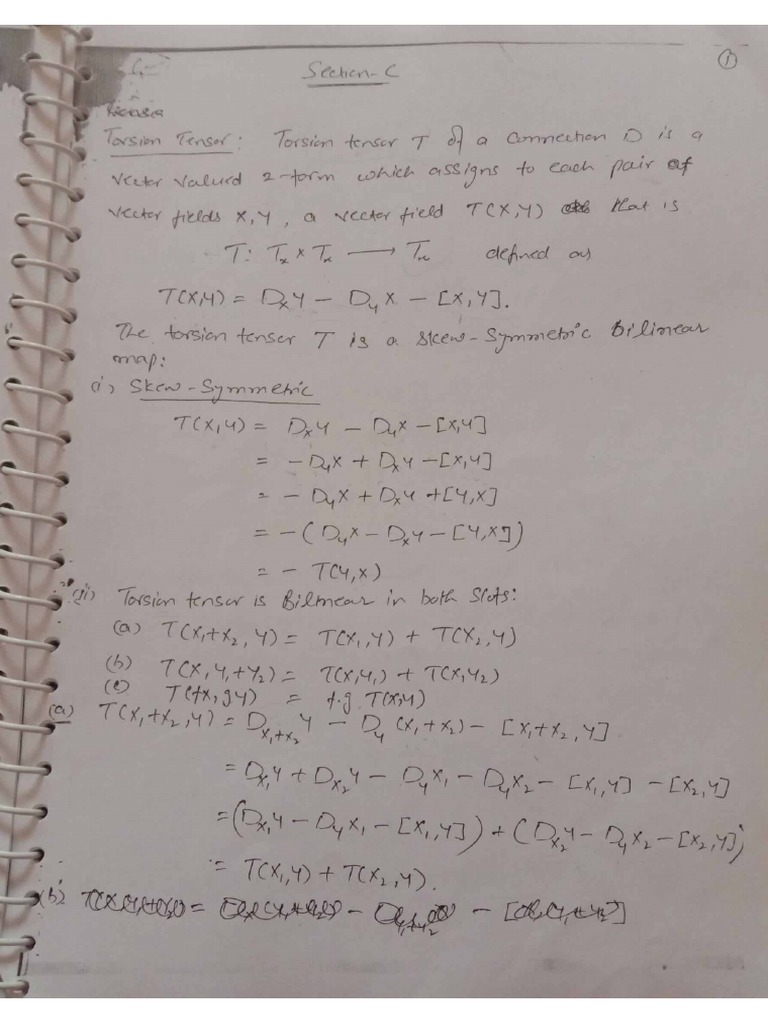 ①
Section-C
Torsion Tensor: Torsion tensor T of a connection D is a
vector valued 2-form which assigns to each pair of
vector fields X, Y, a vector field T(X,Y) that is
T: Tx × Tx ⟶ Tx defined as
T(X,Y) = D_X Y - D_Y X - [X,Y].
The torsion tensor T is a skew-symmetric Bilinear
map:
(i) Skew-Symmetric
T(X,Y) = D_X Y - D_Y X - [X,Y]
= - D_Y X + D_X Y - [X,Y]
= - D_Y X + D_X Y + [Y,X]
= - (D_Y X - D_X Y - [Y,X])
= - T(Y,X)
(ii) Torsion tensor is Bilinear in both Slots:
(a) T(X₁+X₂, Y) = T(X₁,Y) + T(X₂,Y)
(b) T(X, Y₁+Y₂) = T(X,Y₁) + T(X,Y₂)
(c) T(fX, gY) = f.g T(X,Y)
(a) T(X₁+X₂,Y) = D_{X₁+X₂} Y - D_Y (X₁+X₂) - [X₁+X₂, Y]
= D_{X₁} Y + D_{X₂} Y - D_Y X₁ - D_Y X₂ - [X₁,Y] - [X₂,Y]
= (D_{X₁} Y - D_Y X₁ - [X₁,Y]) + (D_{X₂} Y - D_Y X₂ - [X₂,Y])
= T(X₁,Y) + T(X₂,Y).
(b)